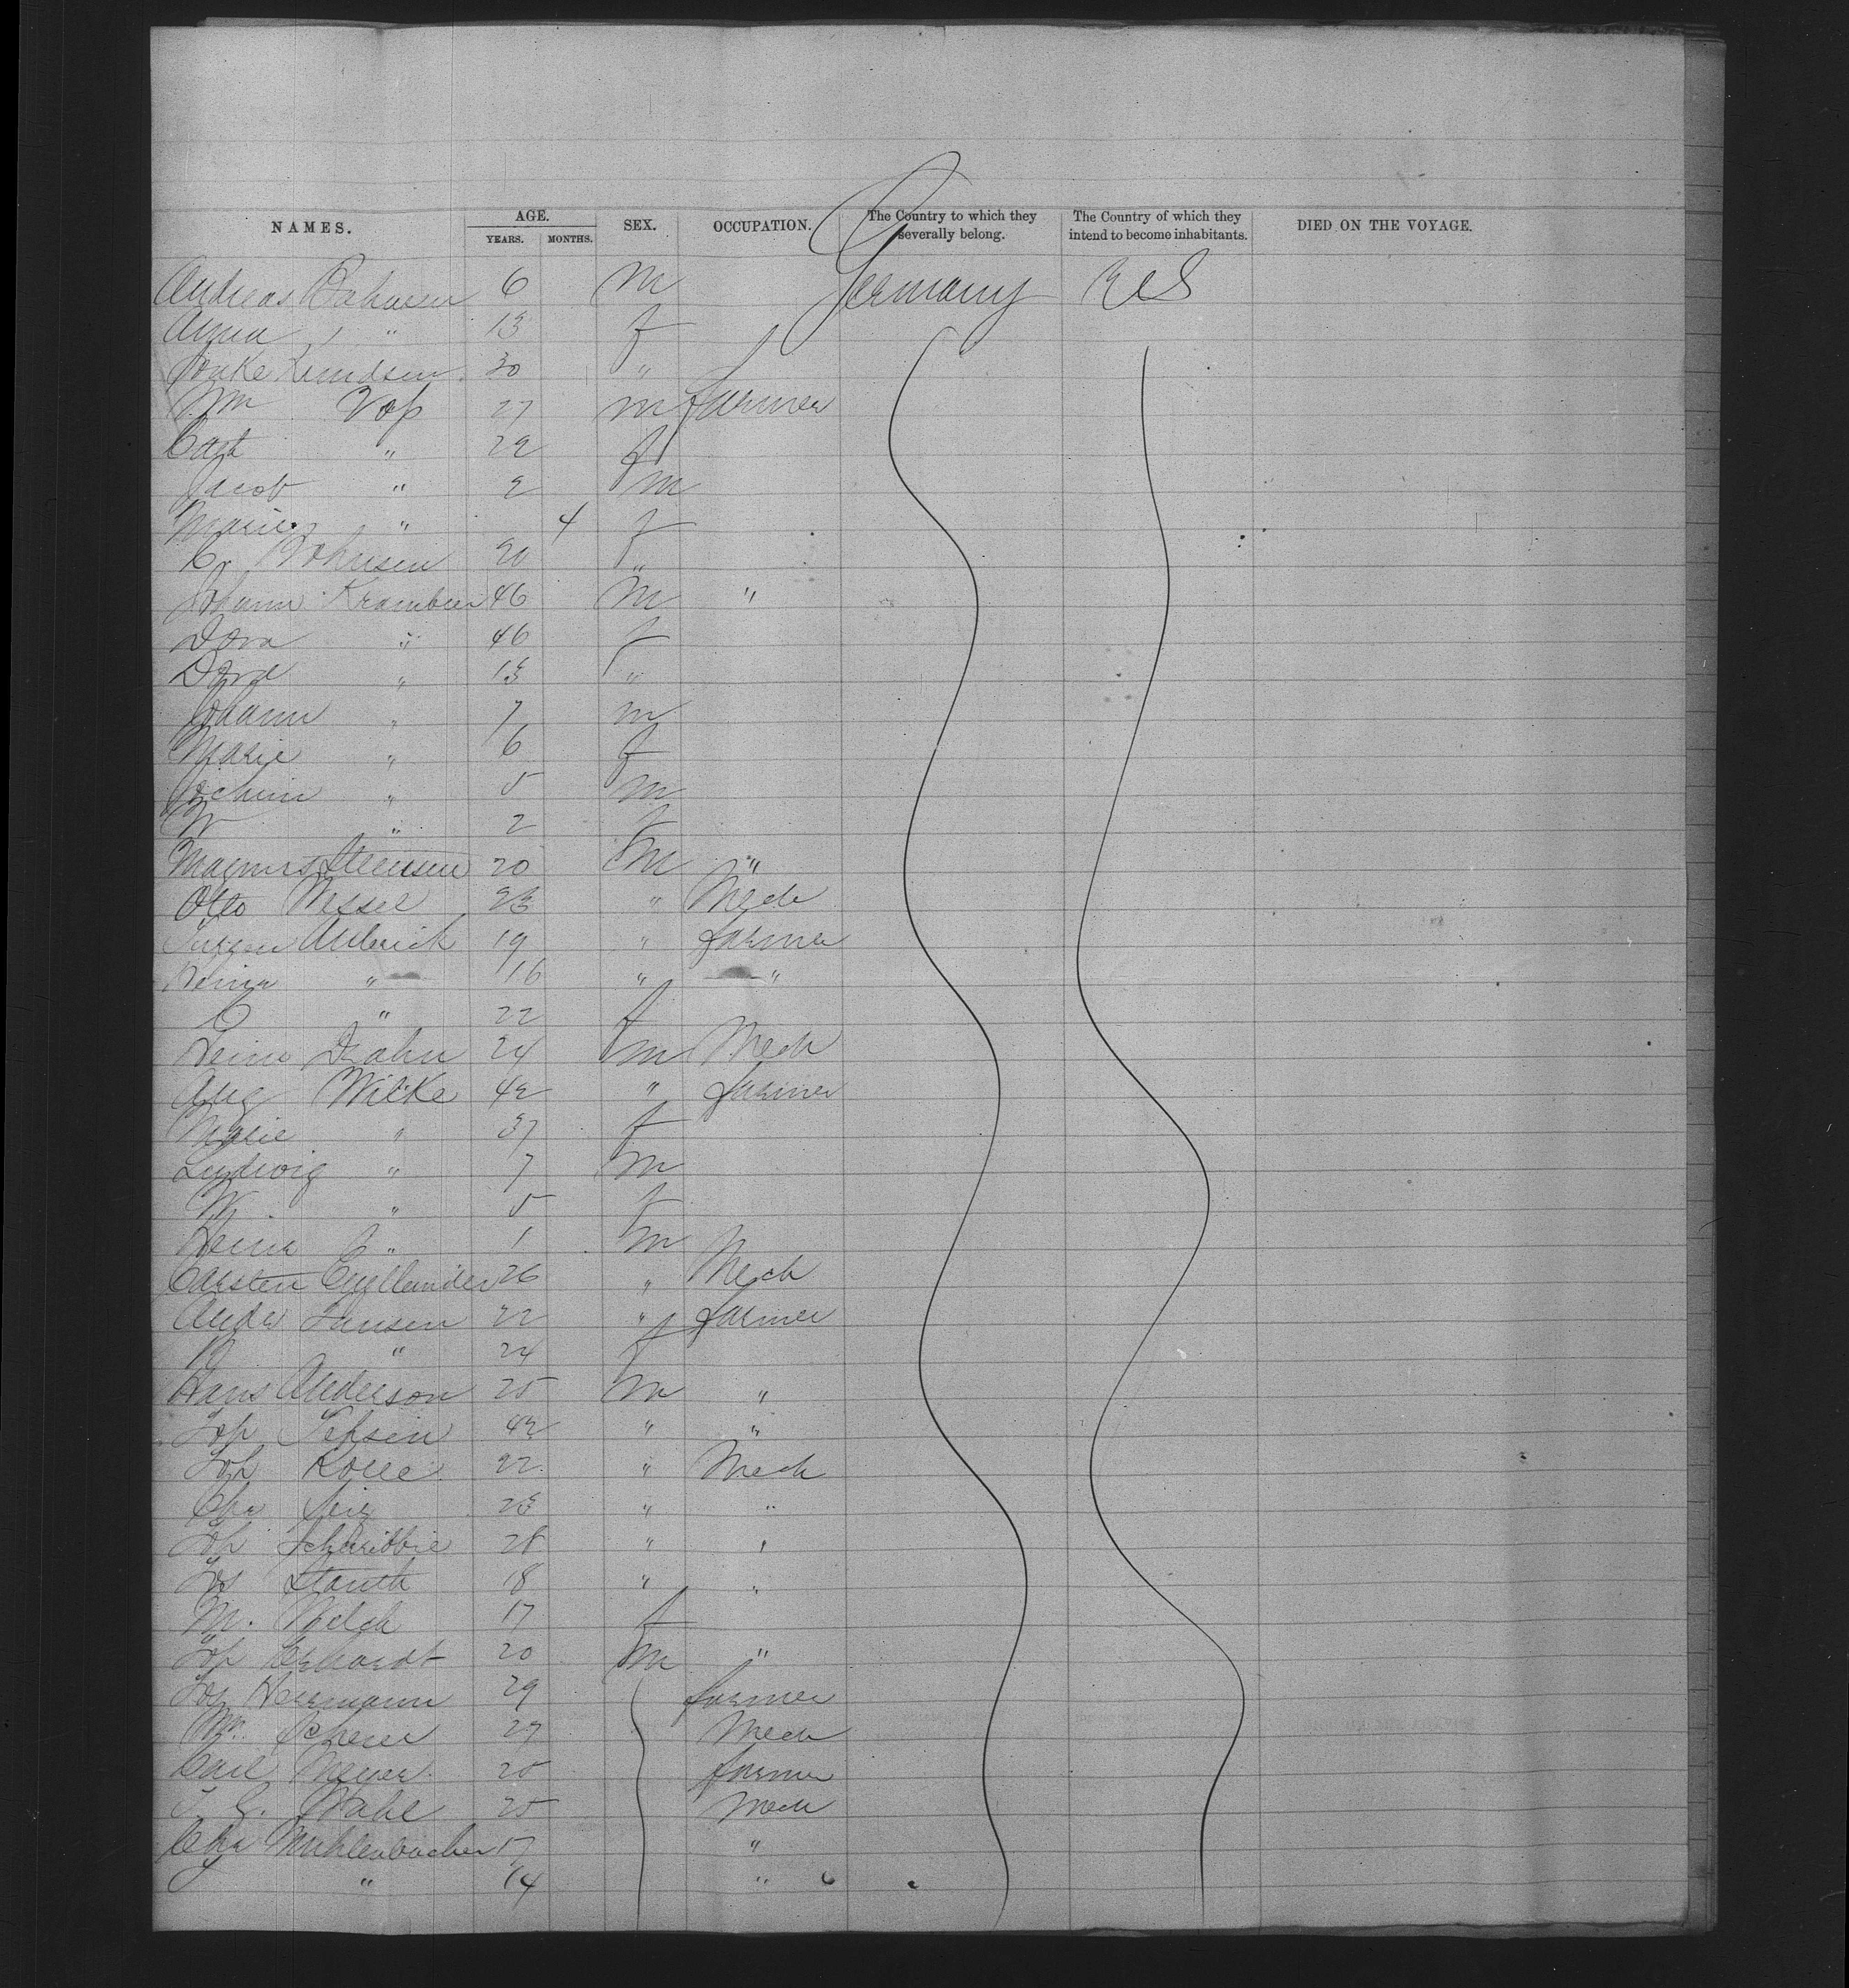 NAMES. AGE. SEX. OCCUPATION. The Country to which they severally belong. The Country of which they intend to become inhabitants. DIED ON THE VOYAGE.
YEARS. MONTHS.
Andreas 6 m Germany U S
Anna " 13 f
30 "
Wm Vop 27 m farmer
Cath " 22 f
Jacob " 2 m
Marie " 4 f
C. 20 "
Johann Krambeer 46 m "
Dora " 46 f
Dora " 13 "
Johann " 7 m
Marie " 6 f
Jochim " 5 m
W " 2 f
Magnus Stensen 20 m "
Otto Wessel 23 " Mech
Jurgen 19 " farmer
Heinr " 16 " "
C " 22 f
Heinr Drahn 24 m Mech
Aug Wilke 42 " farmer
Marie " 37 f
Ludwig " 7 m
W " 5 f
Heinr " 1 m
Carsten 26 " Mech
Andr Jansen 22 " farmer
" 24 f
Hans Anderson 25 m "
Jepsen 42 " "
Joh Kolle 22 " Mech
Chr 23 " "
Joh 28 " "
18 " "
M. Welch 17 f
Gerhardt 20 m "
Herrmann 29 farmer
Wm Scherer 27 Mech
Carl Meyer 25 farmer
J. G. Wahl 25 Mech
Chr Muhlenbacher 17 "
" 14 "